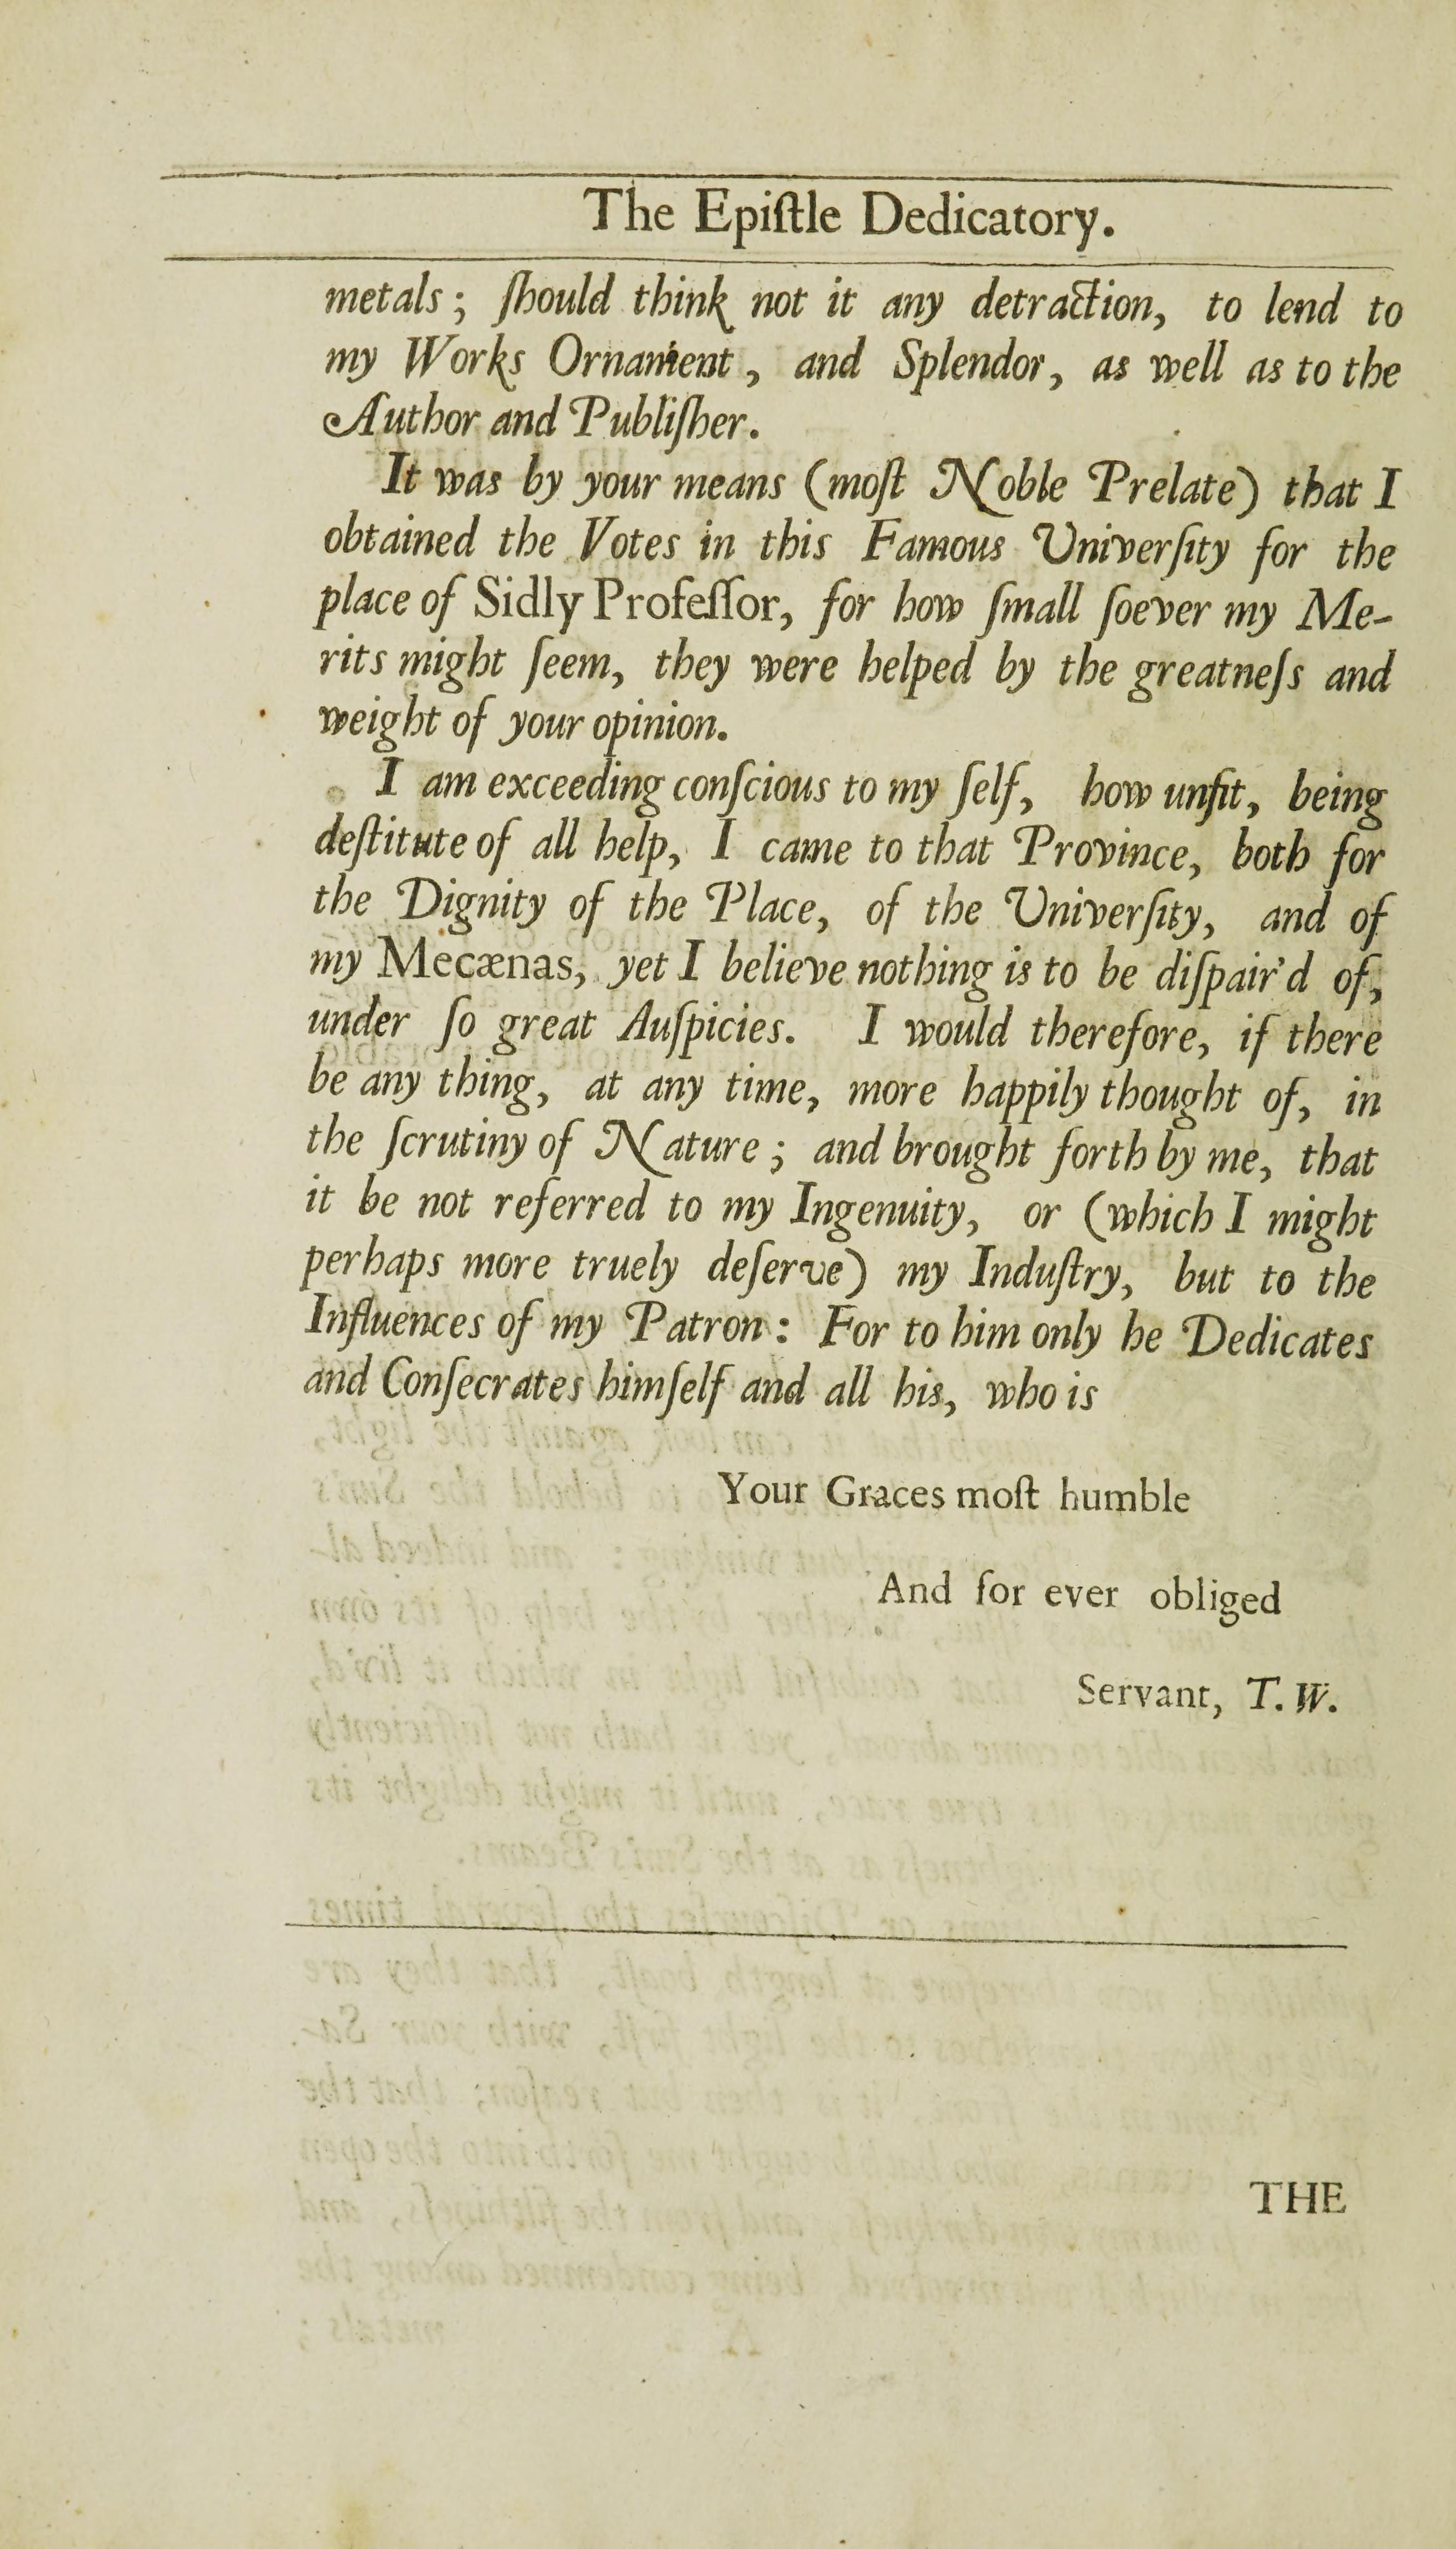 The Epiſtle Dedicatory.
metals; ſhould think not it any detraction, to lend to
my Works Ornament, and Splendor, as well as to the
Author and Publiſher.
It was by your means (moſt Noble Prelate) that I
obtained the Votes in this Famous Univerſity for the
place of Sidly Profeſſor, for how ſmall ſoever my Me-
rits might ſeem, they were helped by the greatneſs and
weight of your opinion.
I am exceeding conſcious to my ſelf, how unfit, being
deſtitute of all help, I came to that Province, both for
the Dignity of the Place, of the Univerſity, and of
my Mecænas, yet I believe nothing is to be diſpair'd of,
under ſo great Auſpicies. I would therefore, if there
be any thing, at any time, more happily thought of, in
the ſcrutiny of Nature; and brought forth by me, that
it be not referred to my Ingenuity, or (which I might
perhaps more truely deſerve) my Induſtry, but to the
Influences of my Patron: For to him only he Dedicates
and Conſecrates himſelf and all his, who is
Your Graces moſt humble
And for ever obliged
Servant, T. W.
THE